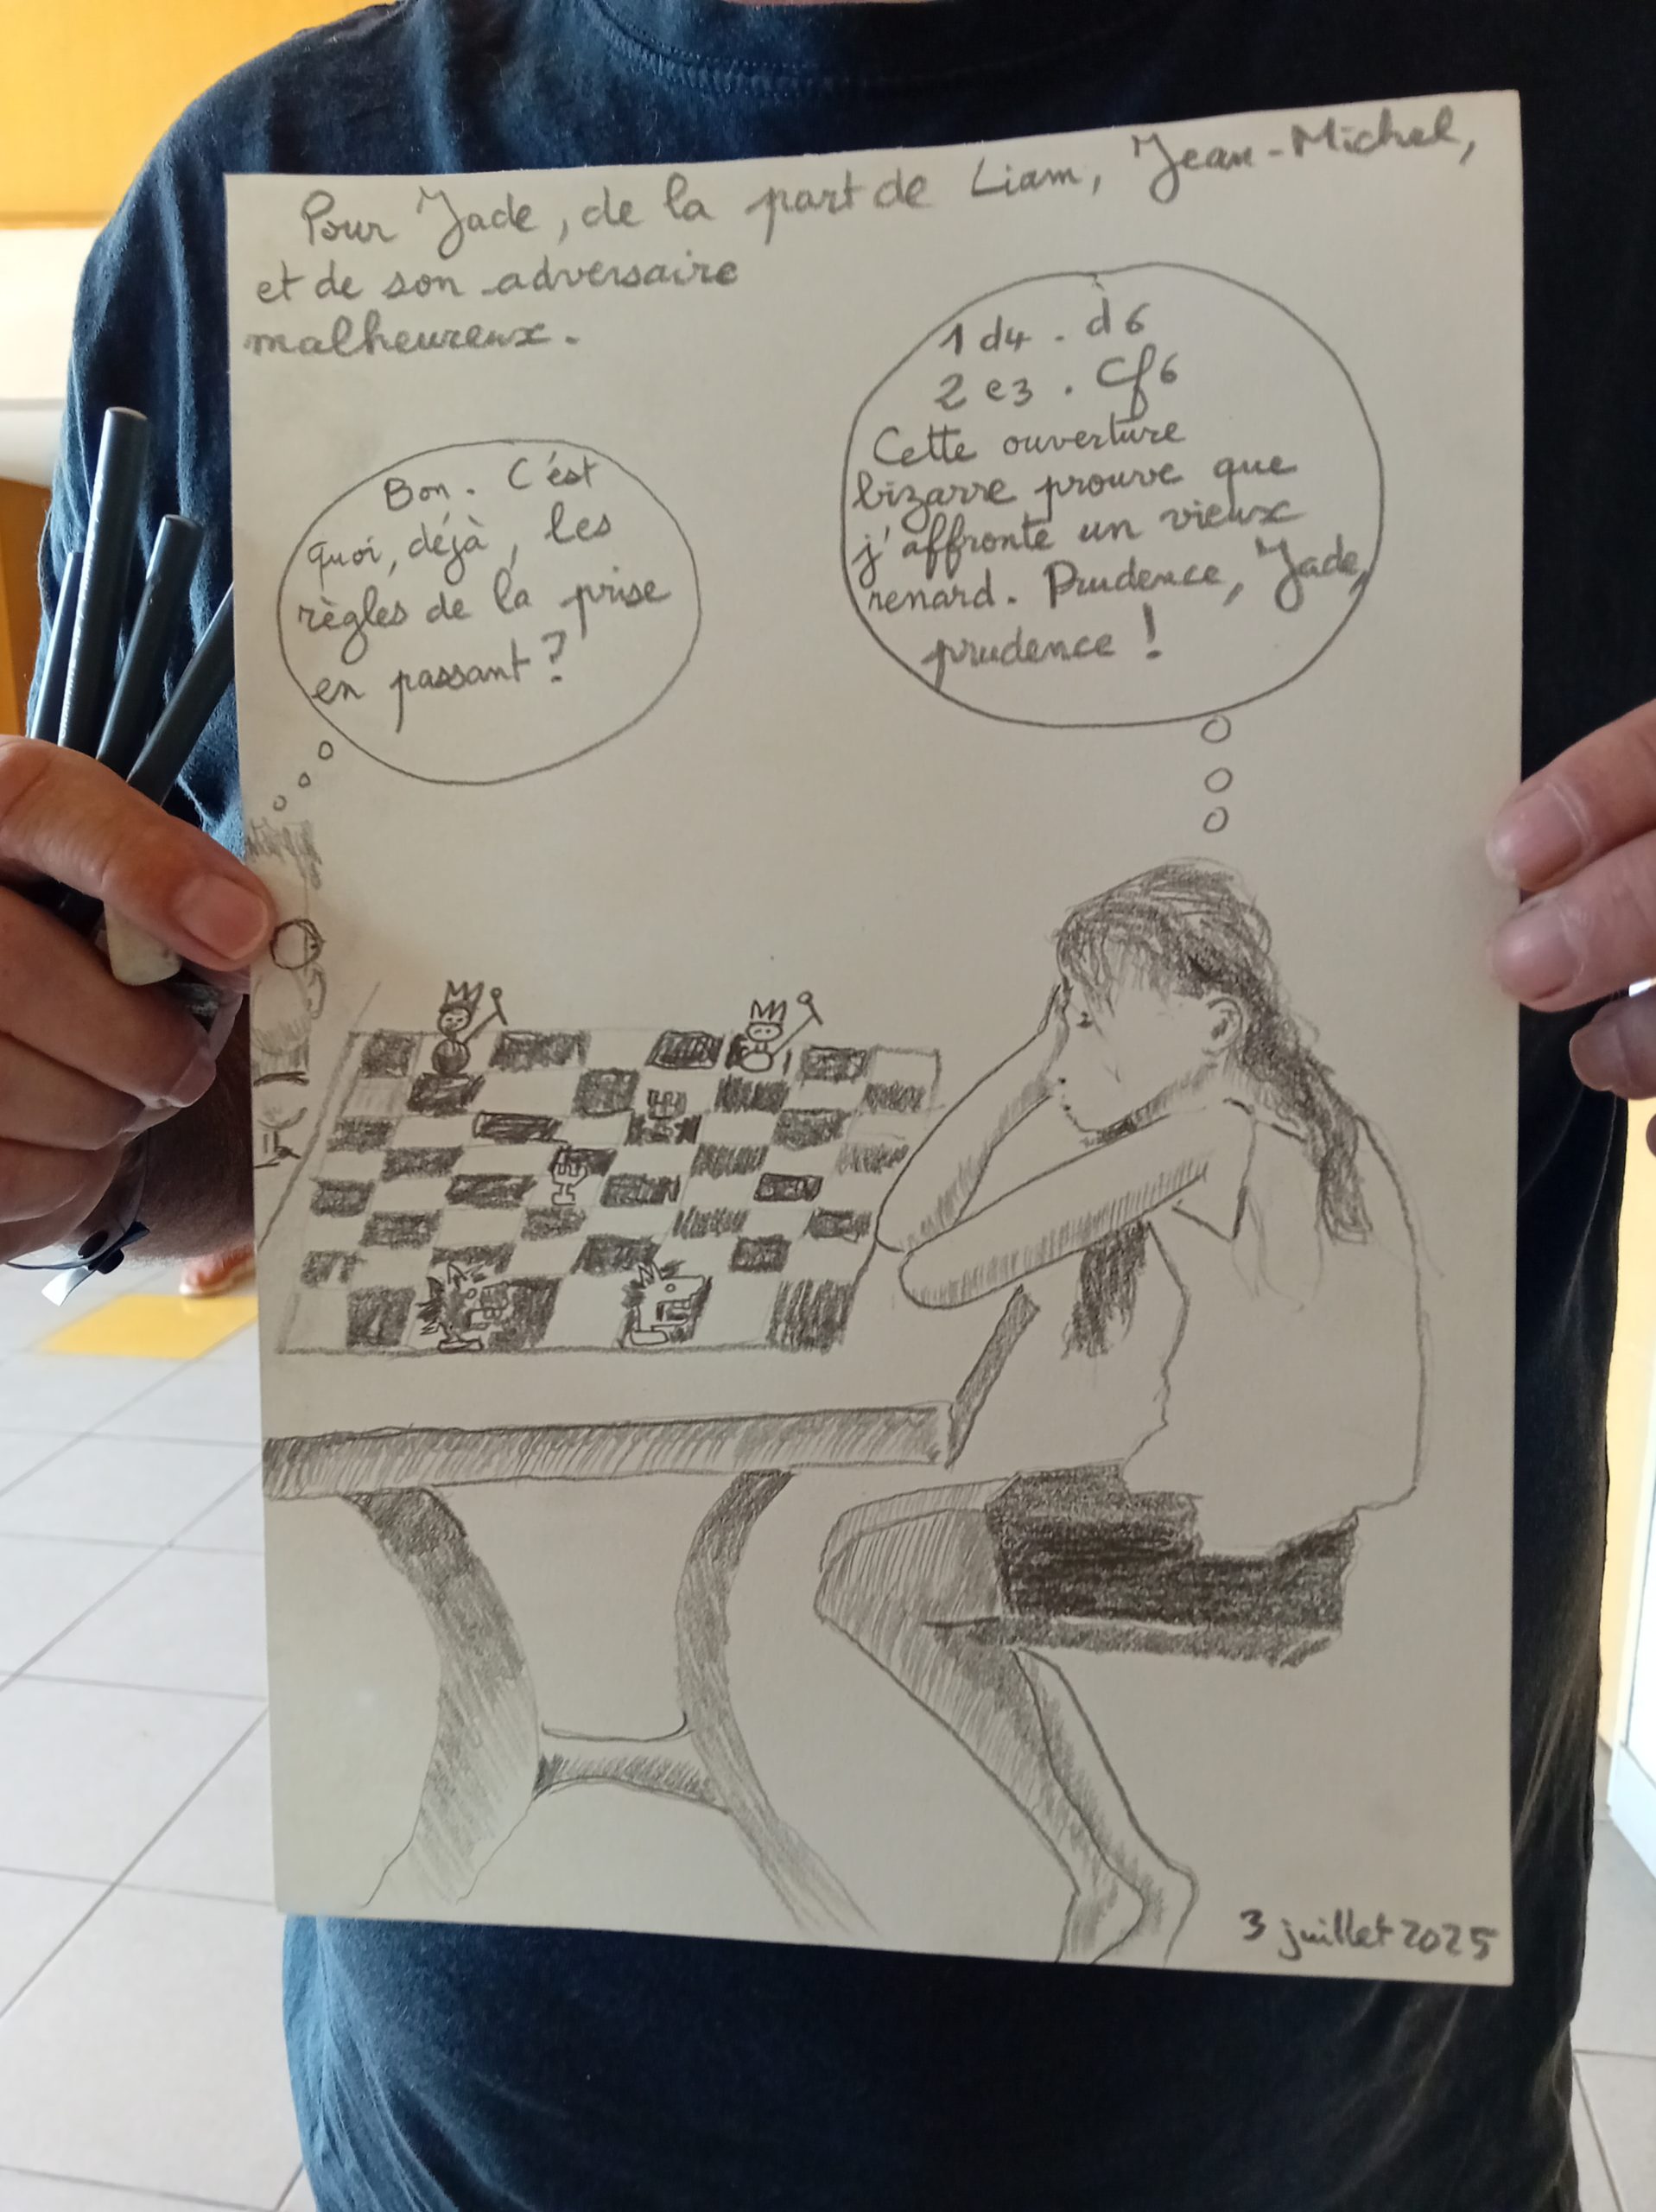 Pour Jade, de la part de Liam, Jean-Michel,
et de son adversaire
malheureux.
Bon. C'est
quoi, déjà, les
règles de la prise
en passant ?
1 d4 . d6
2 e3 . Cf6
Cette ouverture
bizarre prouve que
j'affronte un vieux
renard. Prudence, Jade,
prudence !
3 juillet 2025